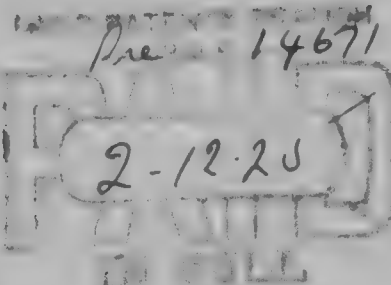 Pre 14671
2-12-20